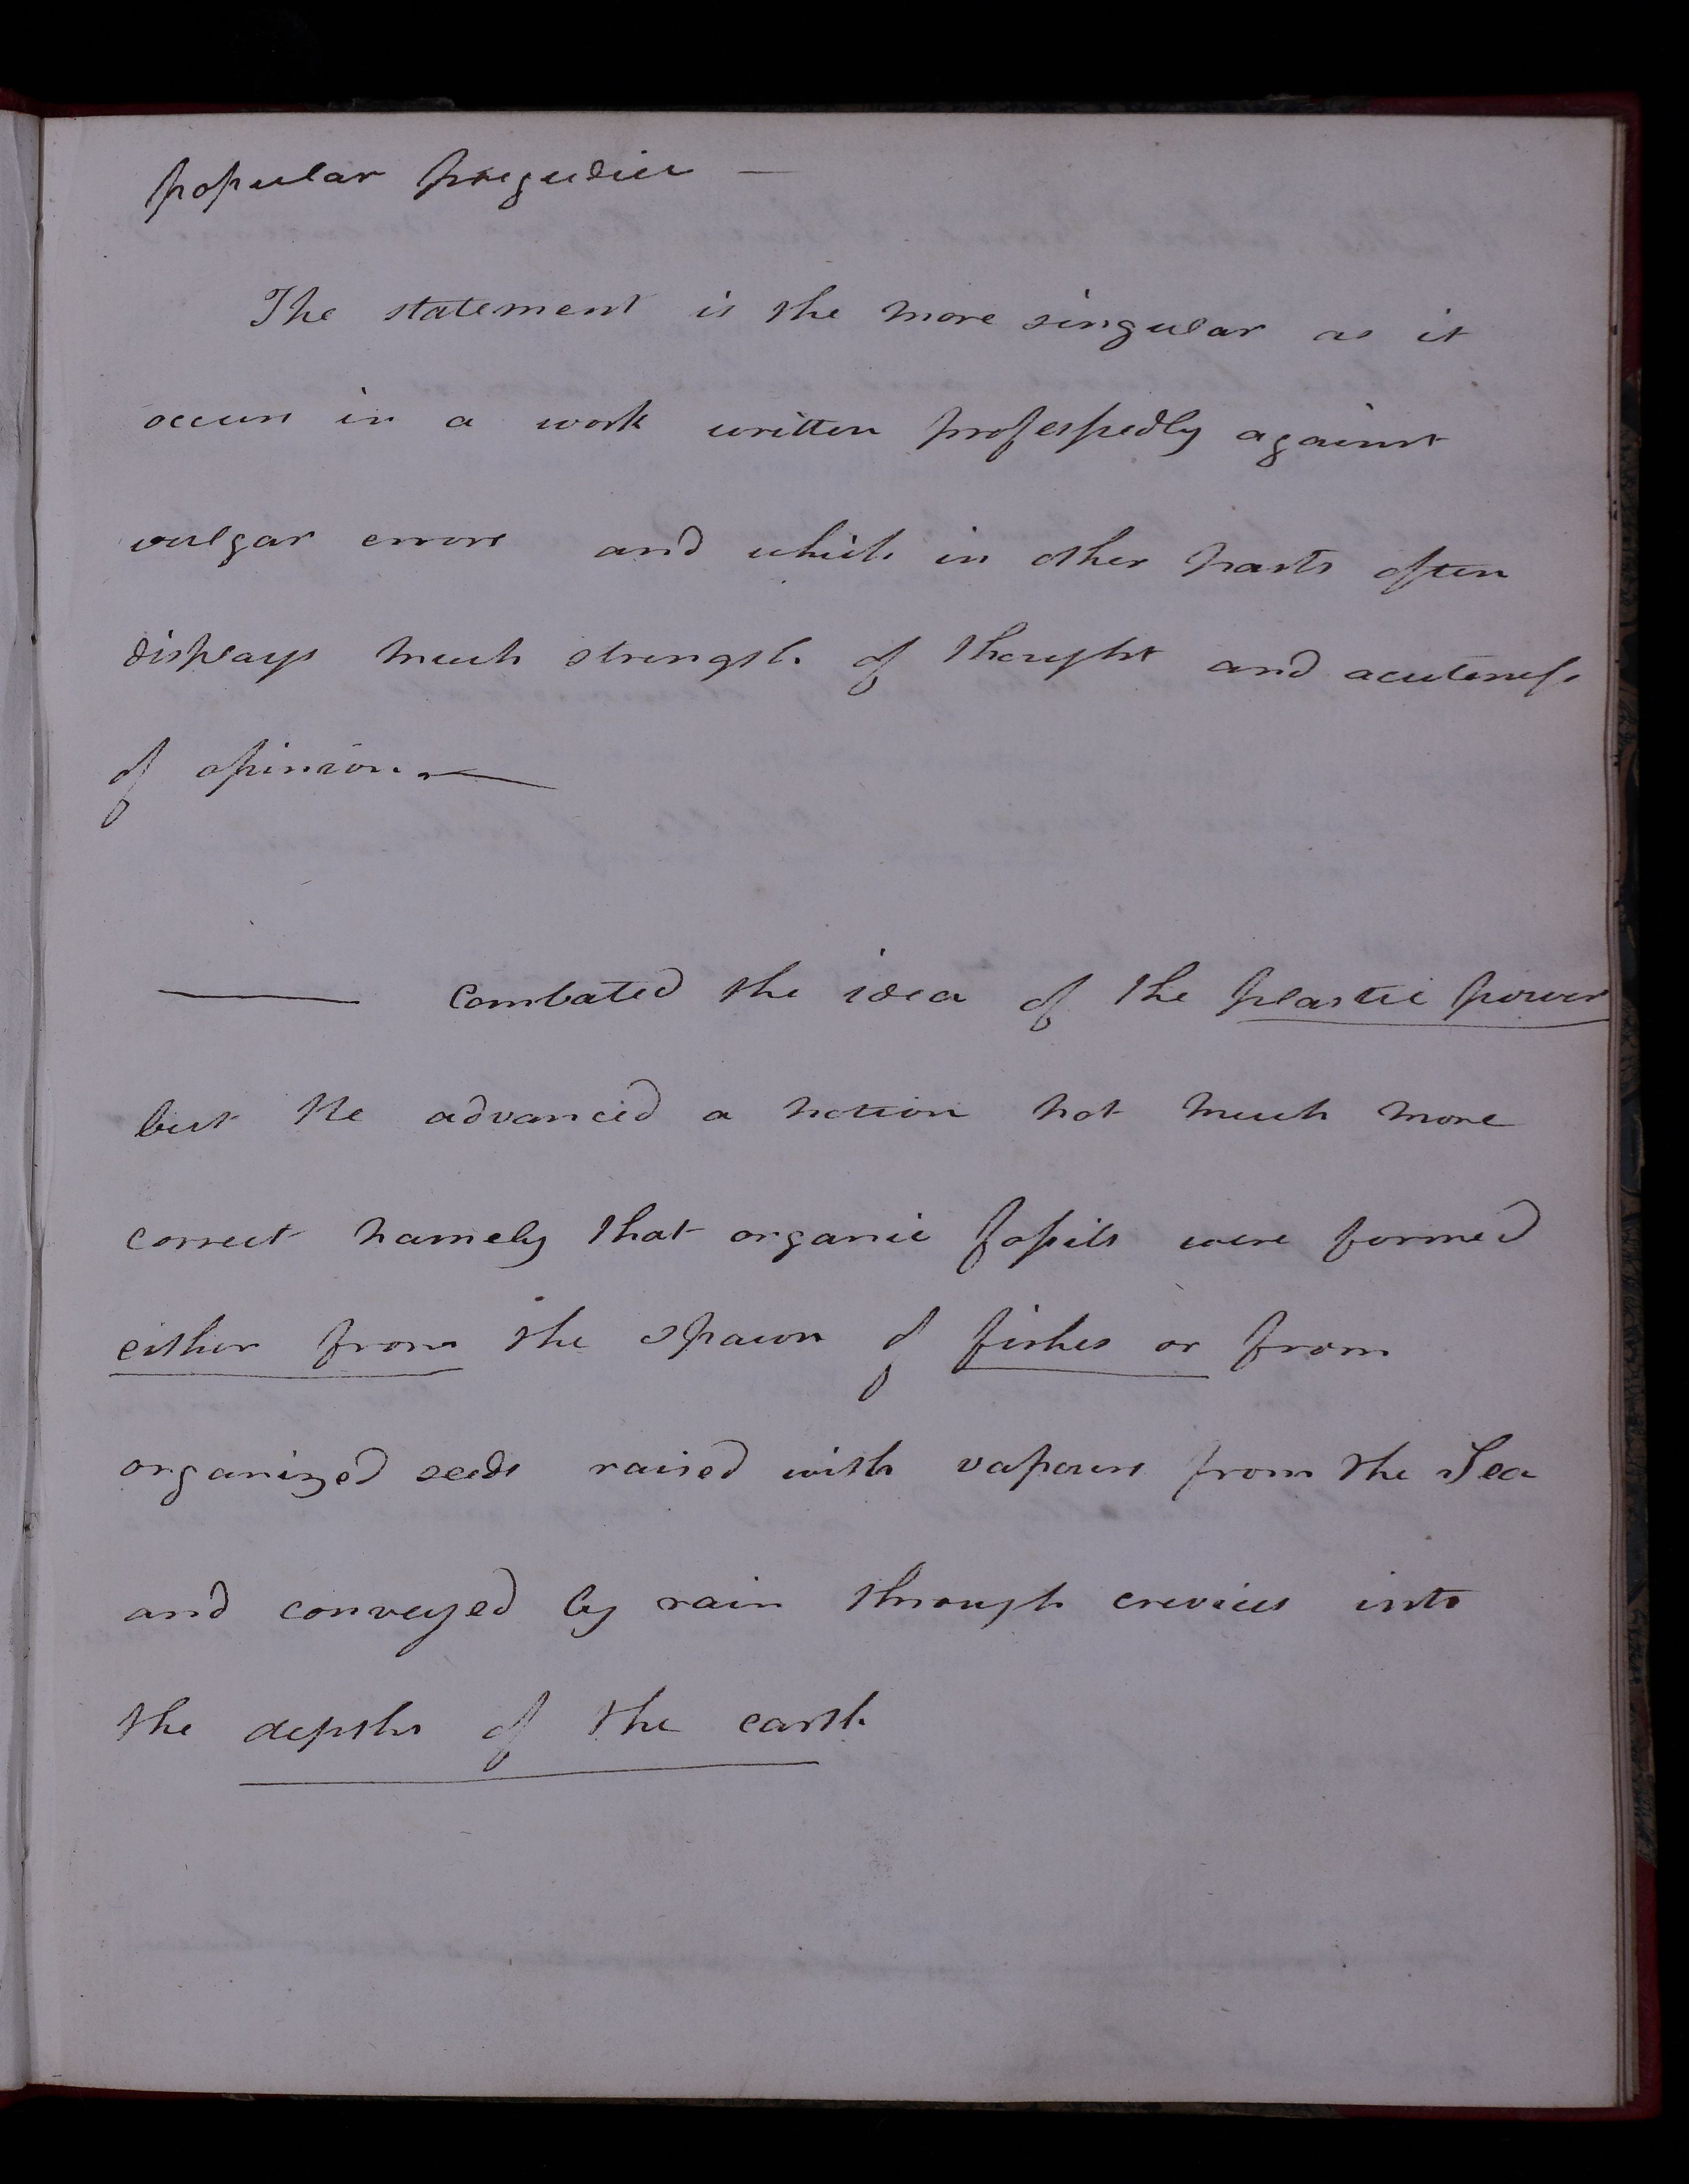 popular prejudice —
The statement is the more singular as it
occurs in a work written professedly against
vulgar errors and which in other parts often
displays much strength of thought and acuteness
of opinion. —
—— combated the idea of the plastic power
but He advanced a notion not much more
correct namely that organic fossils were formed
either from the spawn of fishes or from
organized seeds raised with vapours from the Sea
and conveyed by rain through crevices into
the depths of the earth